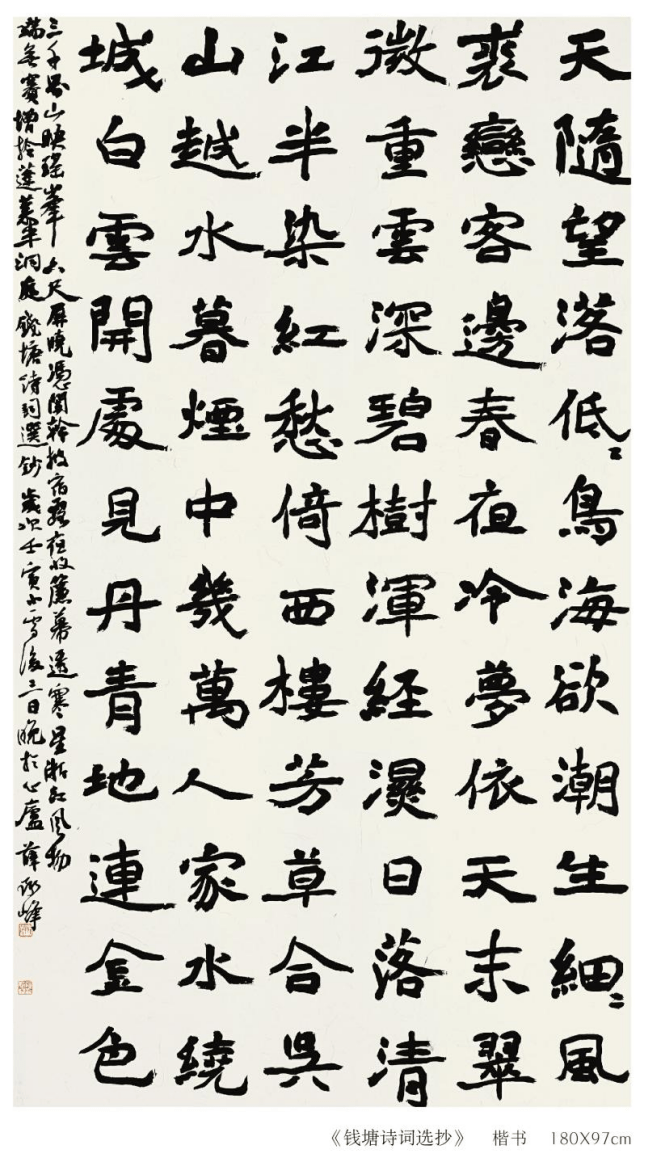 天隨望落低〻鳥海欲潮生細〻風
裘戀客邊春夜冷夢依天末翠
微重雲深碧樹渾經濕日落清
江半染紅愁倚西樓芳草合吳
山越水暮煙中幾萬人家水繞
城白雲開處見丹青地連金色
三千界山映瑤峯六尺屏曉憑闌幹披宿霧夜收簾幕逗寒星浙江風物
端無賽增拾蓬萊半洞庭錢塘詩詞選鈔歲次壬寅小雪後三日晚於心廬薛峰
《钱塘诗词选抄》 楷书 180X97cm